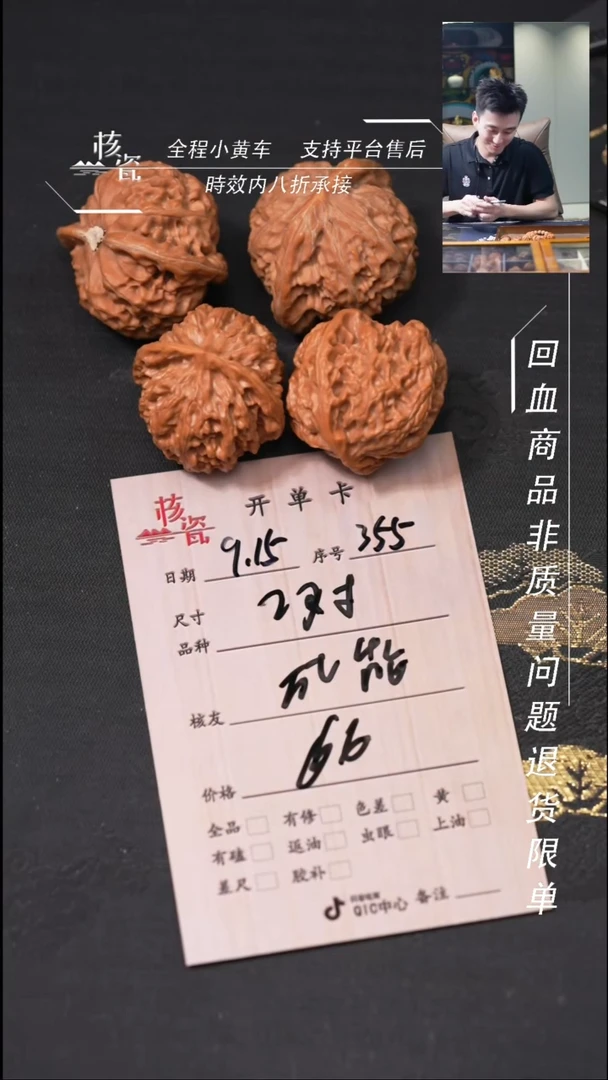 核瓷
全程小黄车 支持平台售后
時效内八折承接
回血商品非质量问题退货限单
核瓷 开单卡
日期 9.15 序号 355
尺寸 2对
品种
核友
价格
全品 有修 色差 黄
有磕 返油 虫眼 上油
差尺 胶补
QIC中心 备注